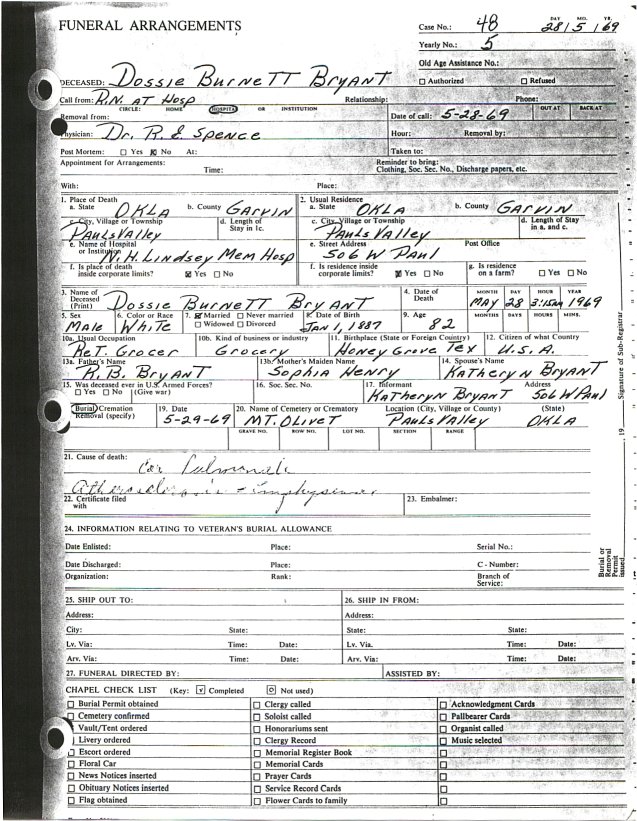 FUNERAL ARRANGEMENTS
DAY MO. YR.
Case No.: 48 28 5 69
Yearly No.: 5
Old Age Assistance No.:
DECEASED: Dossie Burnett Bryant ☐ Authorized ☐ Refused
Call from: R.N. at Hosp Relationship: Phone:
CIRCLE: HOME HOSPITAL OR INSTITUTION OUT AT BACK AT
Removal from: Date of call: 5-28-69
Physician: Dr. R. E. Spence Hour: Removal by:
Post Mortem: ☐ Yes ☒ No At: Taken to:
Appointment for Arrangements: Reminder to bring:
Time: Clothing, Soc. Sec. No., Discharge papers, etc.
With: Place:
1. Place of Death 2. Usual Residence
a. State OKLA b. County Garvin a. State OKLA b. County Garvin
c. City, Village or Township d. Length of Stay in 1c. c. City, Village or Township d. Length of Stay in a. and c.
Pauls Valley Pauls Valley
e. Name of Hospital or Institution W. H. Lindsey Mem Hosp e. Street Address 506 W Paul Post Office
f. Is place of death inside corporate limits? ☒ Yes ☐ No f. Is residence inside corporate limits? ☒ Yes ☐ No g. Is residence on a farm? ☐ Yes ☐ No
3. Name of Deceased (Print) Dossie Burnett Bryant 4. Date of Death MONTH DAY HOUR YEAR
May 28 3:15am 1969
5. Sex 6. Color or Race 7. ☒ Married ☐ Never married 8. Date of Birth 9. Age MONTHS DAYS HOURS MINS.
Male White ☐ Widowed ☐ Divorced Jan 1, 1887 82
10a. Usual Occupation 10b. Kind of business or industry 11. Birthplace (State or Foreign Country) 12. Citizen of what Country
Ret. Grocer Grocery Honey Grove Tex U.S.A.
13a. Father's Name 13b. Mother's Maiden Name 14. Spouse's Name
R. B. Bryant Sophia Henry Katheryn Bryant
15. Was deceased ever in U.S. Armed Forces? 16. Soc. Sec. No. 17. Informant Address
☐ Yes ☐ No (Give war) Katheryn Bryant 506 W Paul
Burial Cremation Removal (specify) 19. Date 20. Name of Cemetery or Crematory Location (City, Village or County) (State)
5-29-69 Mt. Olivet Pauls Valley OKLA
GRAVE NO. ROW NO. LOT NO. SECTION RANGE
21. Cause of death:
Cor Pulmonale
Atherosclerosis - Emphysema
22. Certificate filed with 23. Embalmer:
24. INFORMATION RELATING TO VETERAN'S BURIAL ALLOWANCE
Date Enlisted: Place: Serial No.:
Date Discharged: Place: C - Number:
Organization: Rank: Branch of Service:
25. SHIP OUT TO: 26. SHIP IN FROM:
Address: Address:
City: State: State: State:
Lv. Via: Time: Date: Lv. Via. Time: Date:
Arv. Via: Time: Date: Arv. Via: Time: Date:
27. FUNERAL DIRECTED BY: ASSISTED BY:
CHAPEL CHECK LIST (Key: √ Completed O Not used)
☐ Burial Permit obtained ☐ Clergy called ☐ Acknowledgment Cards
☐ Cemetery confirmed ☐ Soloist called ☐ Pallbearer Cards
Vault/Tent ordered ☐ Honorariums sent ☐ Organist called
☐ Livery ordered ☐ Clergy Record ☐ Music selected
☐ Escort ordered ☐ Memorial Register Book ☐
☐ Floral Car ☐ Memorial Cards ☐
☐ News Notices inserted ☐ Prayer Cards ☐
☐ Obituary Notices inserted ☐ Service Record Cards ☐
☐ Flag obtained ☐ Flower Cards to family ☐
Signature of Sub-Registrar
19
Burial or Removal Permit issued